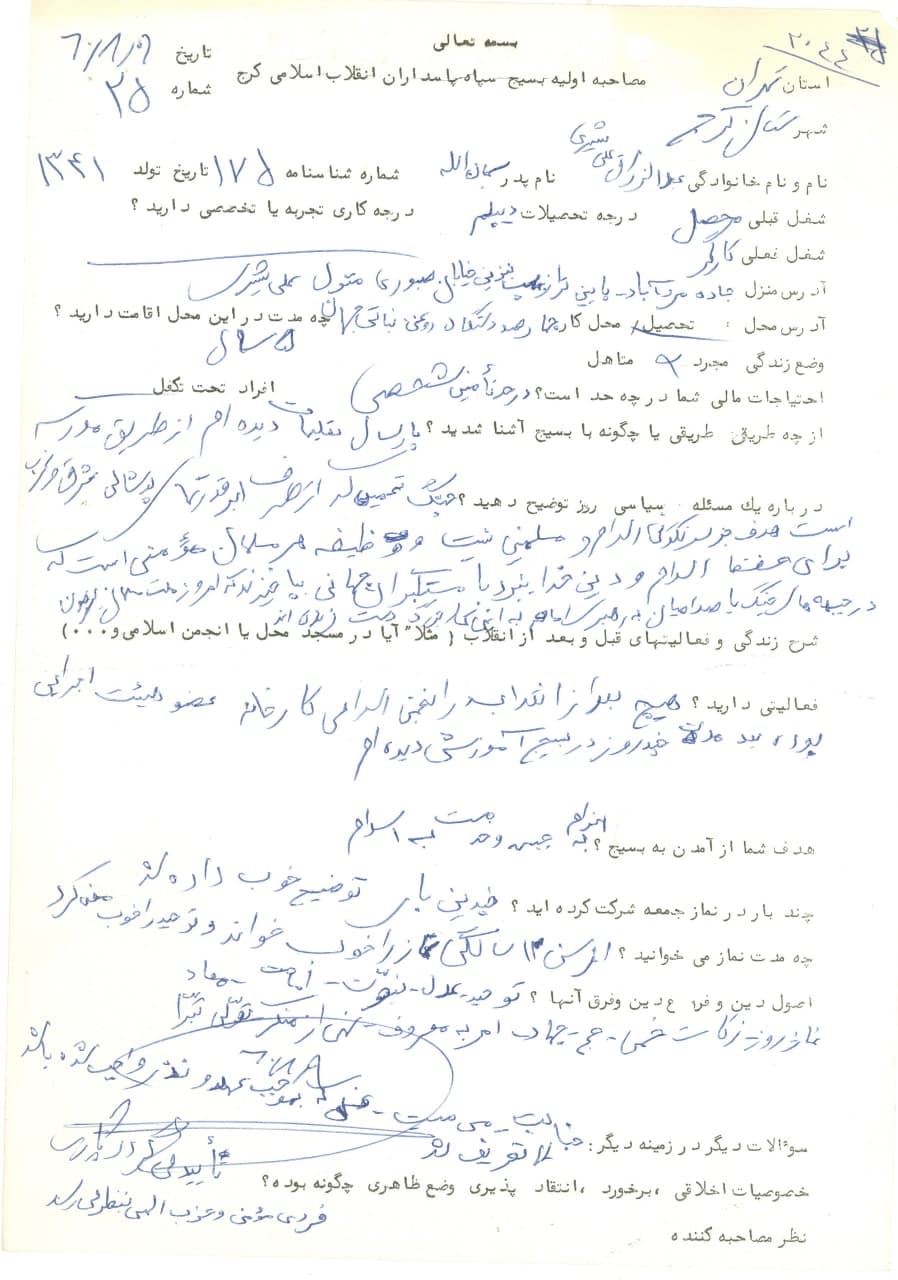 بسمه تعالی
۲۰۴۴
تاریخ ۶۰/۸/۹
مصاحبه اولیه بسیج سپاه پاسداران انقلاب اسلامی کرج
شماره ۲۵
استان تهران
شهرستان کرج
نام و نام خانوادگی عبدالرزاق علی شیری نام پدر سبحان‌الله شماره شناسنامه ۱۷۵ تاریخ تولد ۱۳۴۱
شغل قبلی محصل درجه تحصیلات دیپلم درجه کاری تجربه یا تخصصی دارید ؟
شغل فعلی کارگر
آدرس منزل جاده مردآباد - پایین تر از خیابان صبوری منزل علی شیری
آدرس محل : تحصیل / محل کار روغن نباتی جهان چه مدت در این محل اقامت دارید ؟ ۵ سال
وضع زندگی مجرد متاهل
احتیاجات مالی شما در چه حد است؟ در حد تأمین شخصی افراد تحت تکفل
از چه طریقی طریقی یا چگونه با بسیج آشنا شدید ؟ پارسال تعلیمات دیده ام از طریق مدرسه
درباره یك مسئله سیاسی روز توضیح دهید ؟ جنگ تحمیلی که از طرف ابرقدرتهای شرق و غرب
است هدف جز سرنگونی اسلام و مسلمین نیست و وظیفه هر مسلمان مؤمنی است که
برای حفظ اسلام و دین خدا با مستکبران جهانی بپا خیزند که امروز ملت
در جبهه های جنگ با صدامیان به رهبری امام به این
شرح زندگی و فعالیتهای قبل و بعد از انقلاب ( مثلا" آیا در مسجد محل یا انجمن اسلامی و ۰۰۰ )
فعالیتی دارید ؟ هیچ بعد از انقلاب در انجمن اسلامی کارخانه عضو هیئت اجرایی
بوده، مدت چند روز در بسیج آموزشی دیده ام
هدف شما از آمدن به بسیج ؟ اعزام به جبهه و خدمت به اسلام
چند بار در نماز جمعه شرکت کرده اید ؟ چندین بار توضیح خوب داده شد
چه مدت نماز می خوانید ؟ از سن ۱۲ سالگی نماز را خوب خواند و توحید را خوب معنی کرد
اصول دین و فروع دین وفرق آنها ؟ توحید - عدل - نبوت - امامت - معاد
نماز روزه - زکات خمس - حج - جهاد امر به معروف - نهی از منکر تولی تبرا
سوٴالات دیگر در زمینه دیگر : جنابت - مس میت - غسلی که بموجب عهد و نذر واجب شده باشد
را تعریف شد
خصوصیات اخلاقی ، برخورد ، انتقاد پذیری وضع ظاهری چگونه بوده ؟
نظر مصاحبه کننده فردی مؤمن و حزب الهی بنظر می رسد